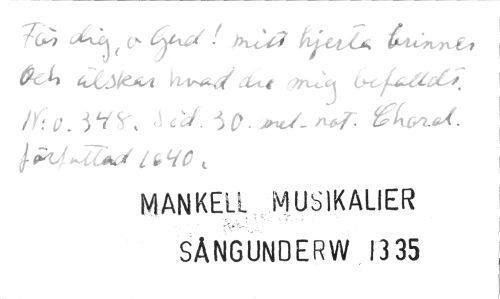 För dig, o Gud! mitt hjerta brinner
Och älskar hvad du mig befalldt.
N:o. 348. Sid. 30. mel- not. Choral.
författad 1640.
MANKELL MUSIKALIER
SÅNGUNDERW 1335